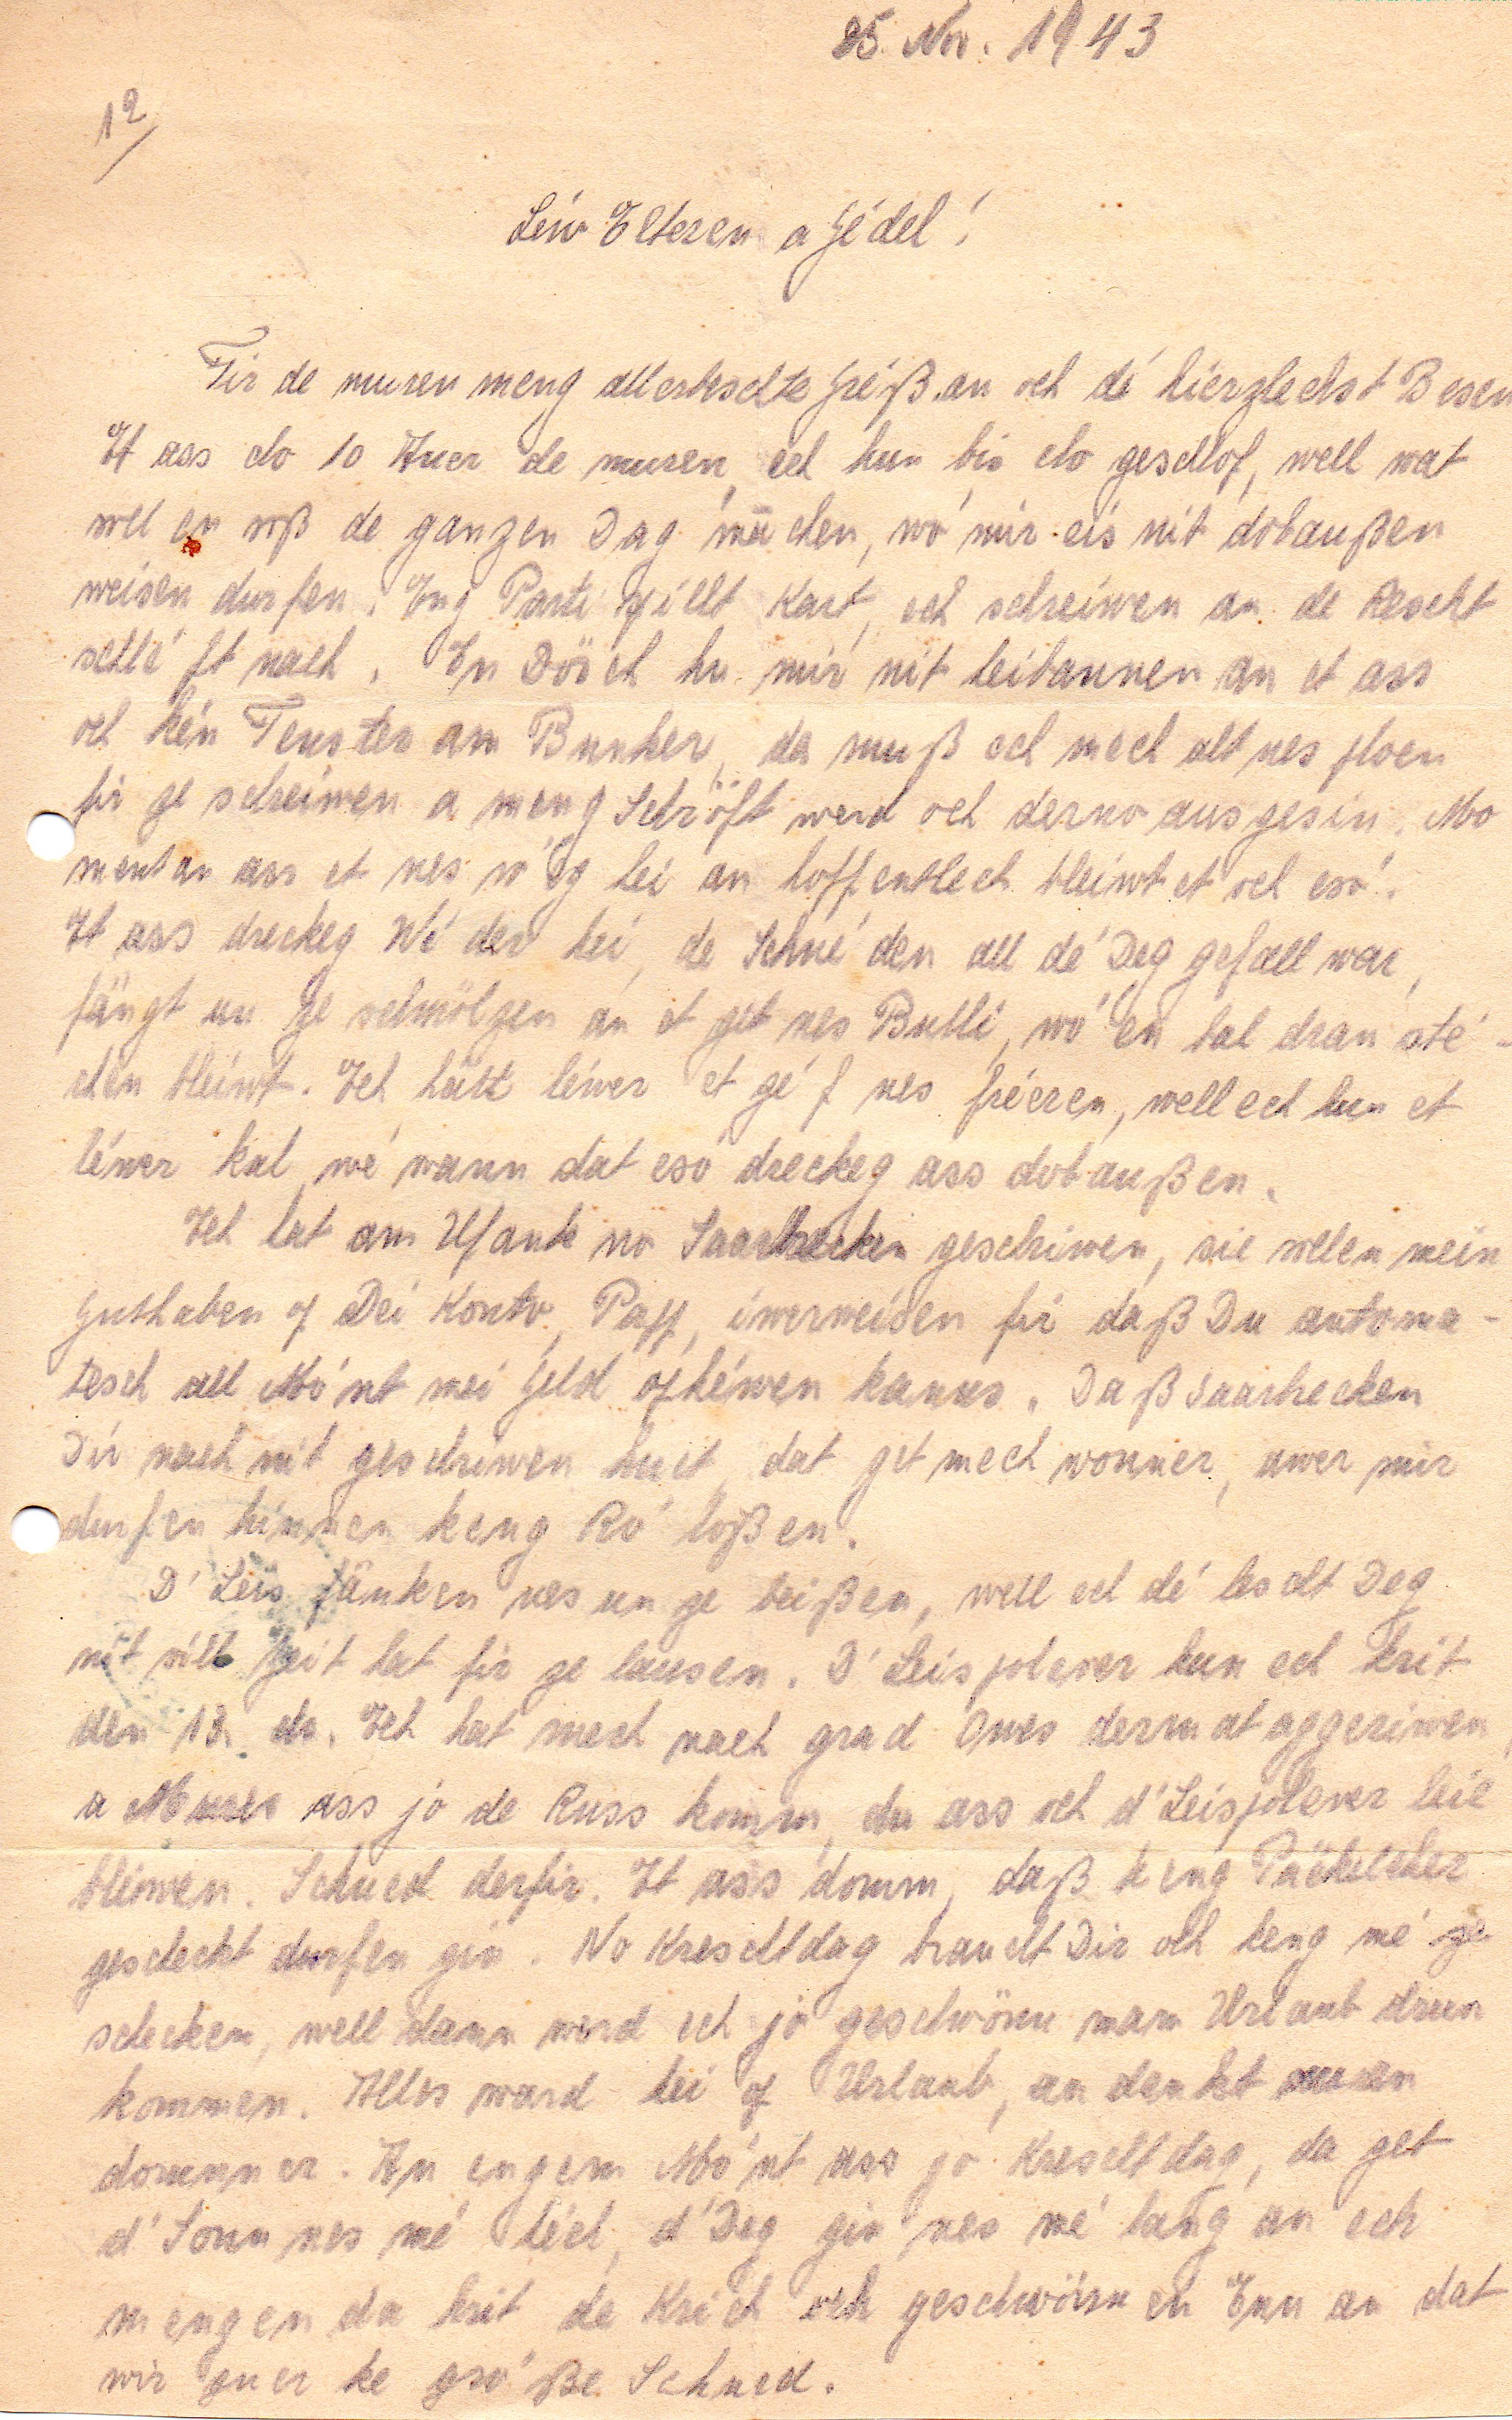 25. Nov. 1943
12/
Léiw Elteren a Gédel!
Fir de muren meng allerbeschte Gréß an och dé hierzlechst Besen
Et ass elo 10 Auer de muren, ech hun bis elo geschlof, well wat
soll en soß de ganzen Dag maachen, wó mir eis nit dobaußen
weisen durfen. Eng Parti spillt Kart, ech schreiwen an de Rescht
schléft nach. En Dösch hu mir nit heibannen an et ass
och kén Fenster am Bunker, da muß ech mech alt nes ploen
fir ze schreiwen a meng Schröft werd och derno ausgesin. Mo
mentan ass et nes róëg hei an hoffentlech bleiwt et och esó.
Et ass dreckeg Wéder hei, de Schné den all dé Deg gefall war,
fängt un ze schmölzen an et get nes Bulli, wó en bal dran sté-
chen bleiwt. Ech hätt léiwer et géf nes fréeren, well ech hun et
léwer kal wé wann dat esó dreckeg ass dobaußen.
Ech hat am Ufank no Saarbrecken geschriwen, sie sollen mein
Guthaben of Dei Konto, Papp, iwerweisen fir daß Du automa-
tesch all Mónt mei Geld ofhéwen kanns. Daß Saarbrecken
Dir nach nit geschriwen huet, dat get mech wonner, awer mir
durfen hinnen keng Ró loßen.
D'Leis fänken nes un ze beißen, well ech dé lescht Deg
nit vill Zeit hat fir ze lausen. D'Leispolever hun ech krit
den 13. do. Ech hat mech nach grad Owes dermat aggeriwen,
a Mures ass jo de Russ komm, du ass och d'Leispolever leie
bliwen. Schued derfir. Et ass domm, daß keng Päckelcher
gescheckt durfen gin. No Kreschtdag braucht Dir och keng mé ze
schecken, well dann werd ech jo geschwönn mam Urlaub drun
kommen. Alles ward hei of Urlaub, an denkt nuren
dorunner. An engem Mónt ass jo Kreschtdag, da get
d'Sonn nes mé héch, d'Deg gin nes mé lang an ech
mengen da krit de Krich och geschwönn en Enn an dat
wir guer ke gróße Schued.